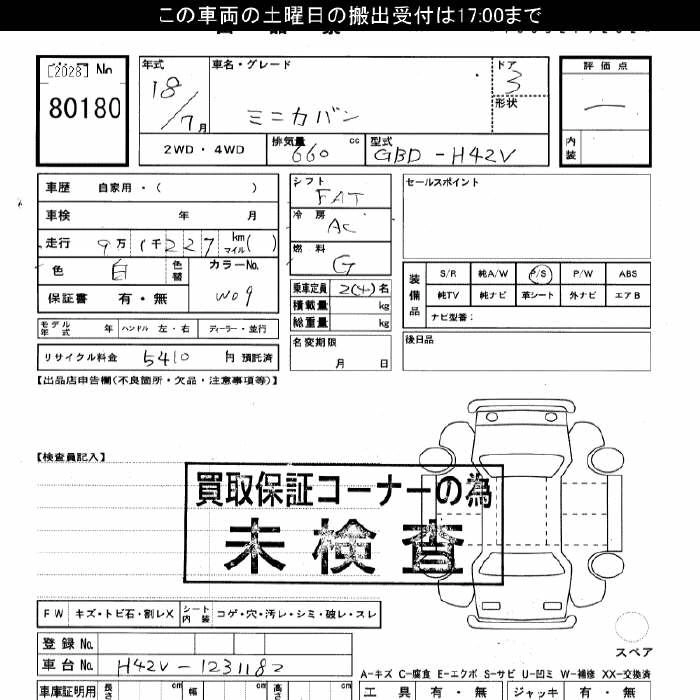 この車両の土曜日の搬出受付は17:00まで
[2028] No
80180
年式 18/7月
車名・グレード ミニカバン
ドア 3
形状
評価点 一
内装
2WD・4WD
排気量 660 cc
型式 GBD-H42V
車歴 自家用・( )
車検 年 月
走行 9万1千227 km マイル( )
色 白 色替 カラーNo. W09
保証書 有・無
モデル年式 年 ハンドル 左・右 ディーラー・並行
リサイクル料金 5410 円 預託済
シフト FAT
冷房 AC
燃料 G
乗車定員 2(4)名
積載量 kg
総重量 kg
名変期限 月 日
セールスポイント
装備品 S/R 純A/W P/S P/W ABS
純TV 純ナビ 革シート 外ナビ エアB
ナビ型番:
後日品
【出品店申告欄(不良箇所・欠品・注意事項等)】
【検査員記入】
買取保証コーナーの為
未検査
FW キズ・トビ石・割レX シート内装 コゲ・穴・汚レ・シミ・破レ・スレ
スペア
登録No.
車台No. H42V-1231182
A-キズ C-腐食 E-エクボ S-サビ U-凹ミ W-補修 XX-交換済
車庫証明用 長さ cm 幅 cm 高さ cm
工具 有・無 ジャッキ 有・無